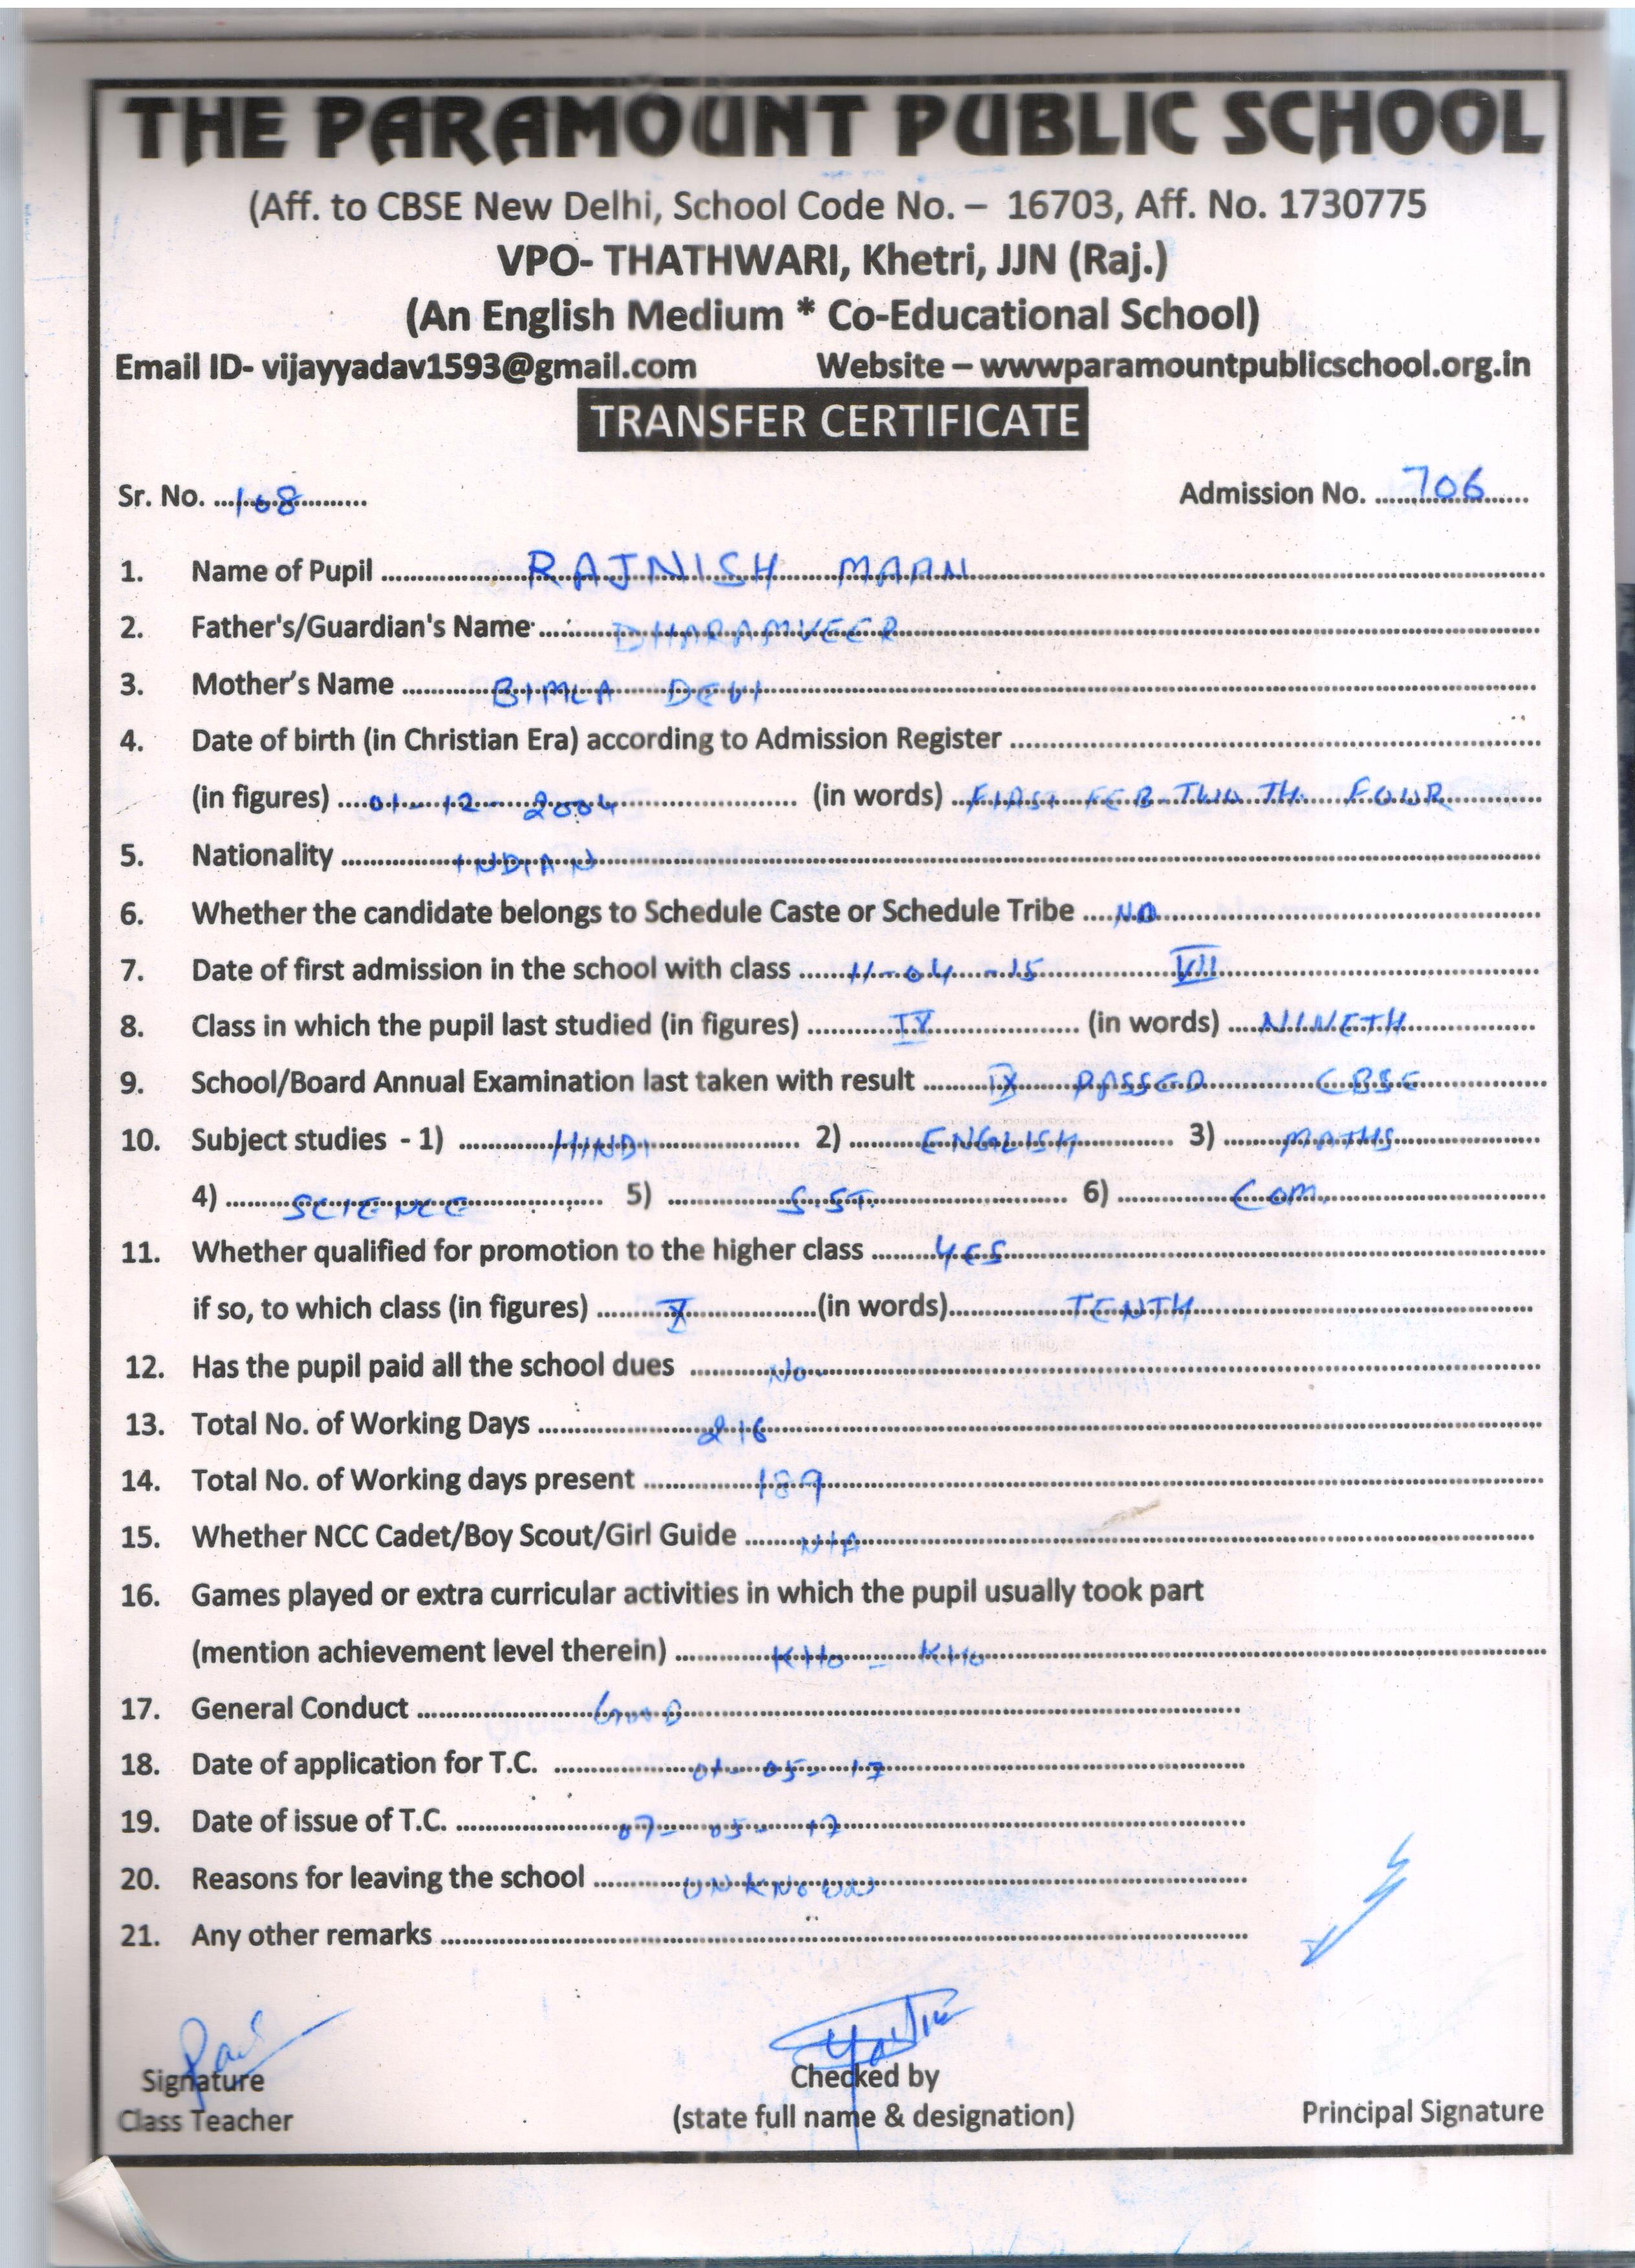 THE PARAMOUNT PUBLIC SCHOOL
(Aff. to CBSE New Delhi, School Code No. – 16703, Aff. No. 1730775
VPO- THATHWARI, Khetri, JJN (Raj.)
(An English Medium * Co-Educational School)
Email ID- vijayyadav1593@gmail.com Website – wwwparamountpublicschool.org.in
TRANSFER CERTIFICATE
Sr. No. 168 Admission No. 706
1. Name of Pupil RAJNISH MAAN
2. Father's/Guardian's Name DHARAMVEER
3. Mother's Name BIMLA DEVI
4. Date of birth (in Christian Era) according to Admission Register
(in figures) 01-12-2004 (in words) FIRST FEB TWO TH. FOUR
5. Nationality INDIAN
6. Whether the candidate belongs to Schedule Caste or Schedule Tribe NO
7. Date of first admission in the school with class 11-04-15 VII
8. Class in which the pupil last studied (in figures) IX (in words) NINETH
9. School/Board Annual Examination last taken with result IX PASSED CBSE
10. Subject studies - 1) HINDI 2) ENGLISH 3) MATHS
4) SCIENCE 5) S.ST. 6) COM.
11. Whether qualified for promotion to the higher class YES
if so, to which class (in figures) X (in words) TENTH
12. Has the pupil paid all the school dues No
13. Total No. of Working Days 216
14. Total No. of Working days present 189
15. Whether NCC Cadet/Boy Scout/Girl Guide N/A
16. Games played or extra curricular activities in which the pupil usually took part
(mention achievement level therein) KHO - KHO
17. General Conduct GOOD
18. Date of application for T.C. 01-05-17
19. Date of issue of T.C. 07-05-17
20. Reasons for leaving the school UNKNOWN
21. Any other remarks
Signature Checked by
Class Teacher (state full name & designation) Principal Signature